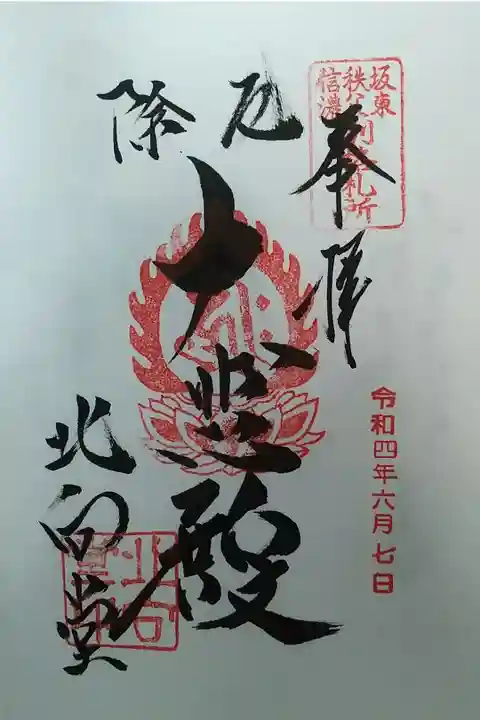 坂東
秩父別格札所
信濃
奉拝
令和四年六月七日
厄除
大悲殿
北向堂
北向
堂